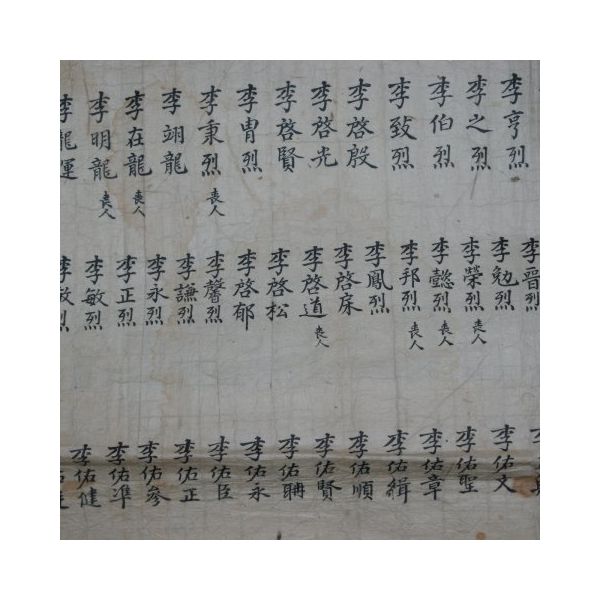 李亨烈
李之烈
李伯烈
李致烈
李啓殷
李啓光
李啓賢
李冑烈
李秉烈 喪人
李翊龍
李在龍 喪人
李明龍 喪人
李龍運
李晉烈
李勉烈
李榮烈 喪人
李懿烈 喪人
李邦烈 喪人
李鳳烈
李啓床
李啓道 喪人
李啓松
李啓郁
李馨烈
李謙烈
李永烈
李正烈
李敏烈
李 烈
李佑文
李佑聖
李佑章
李佑緝
李佑順
李佑賢
李佑聃
李佑永
李佑臣
李佑正
李佑參
李佑準
李佑健